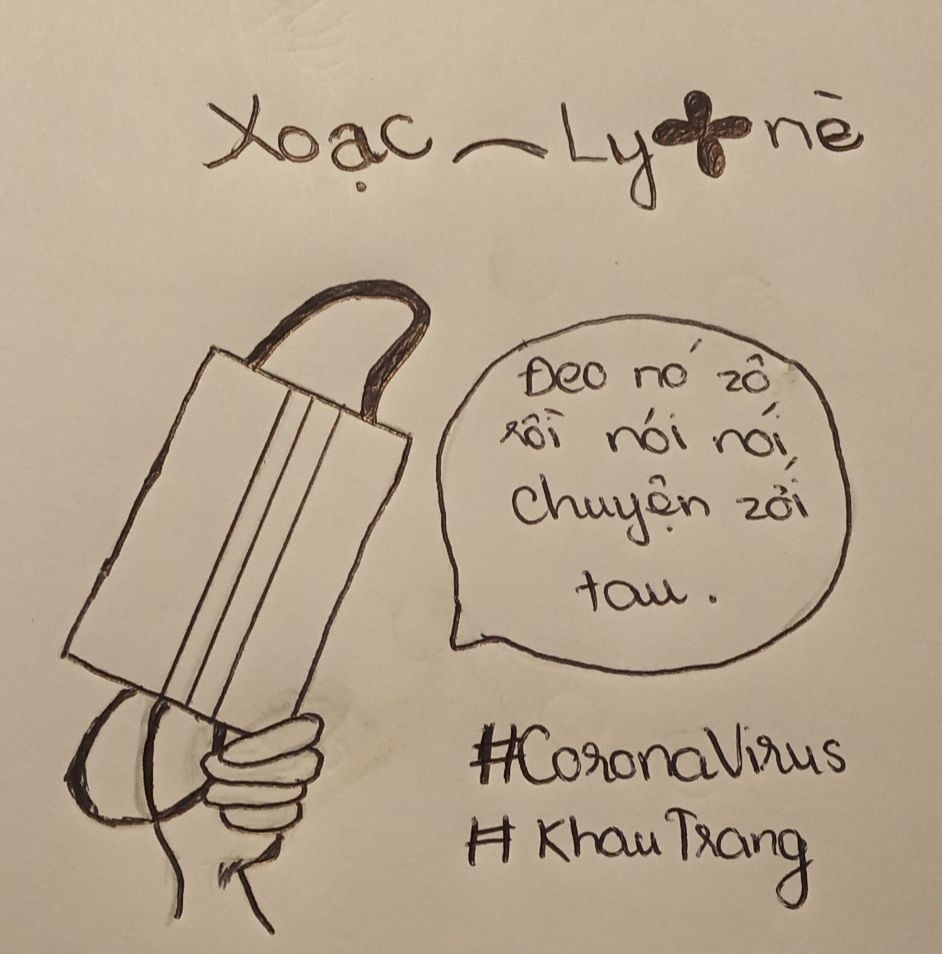 Xoạc ~ Ly nè
Đeo nó zô
rồi nói nói
chuyện zới
tau.
#CoronaVirus
#KhauTrang